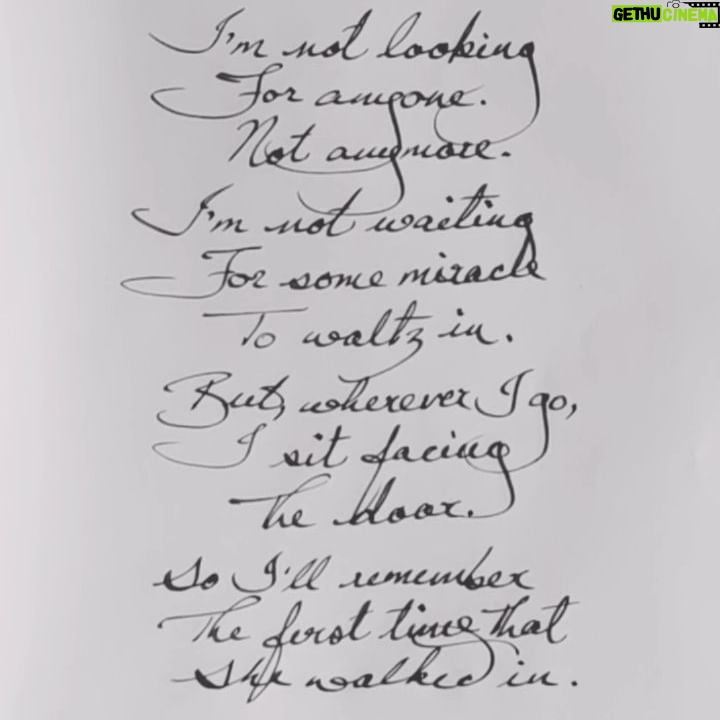 GETHU CINEMA
I'm not looking
For anyone.
Not anymore.
I'm not waiting
For some miracle
To waltz in.
But, wherever I go,
I sit facing
The door.
So I'll remember
The first time that
She walked in.